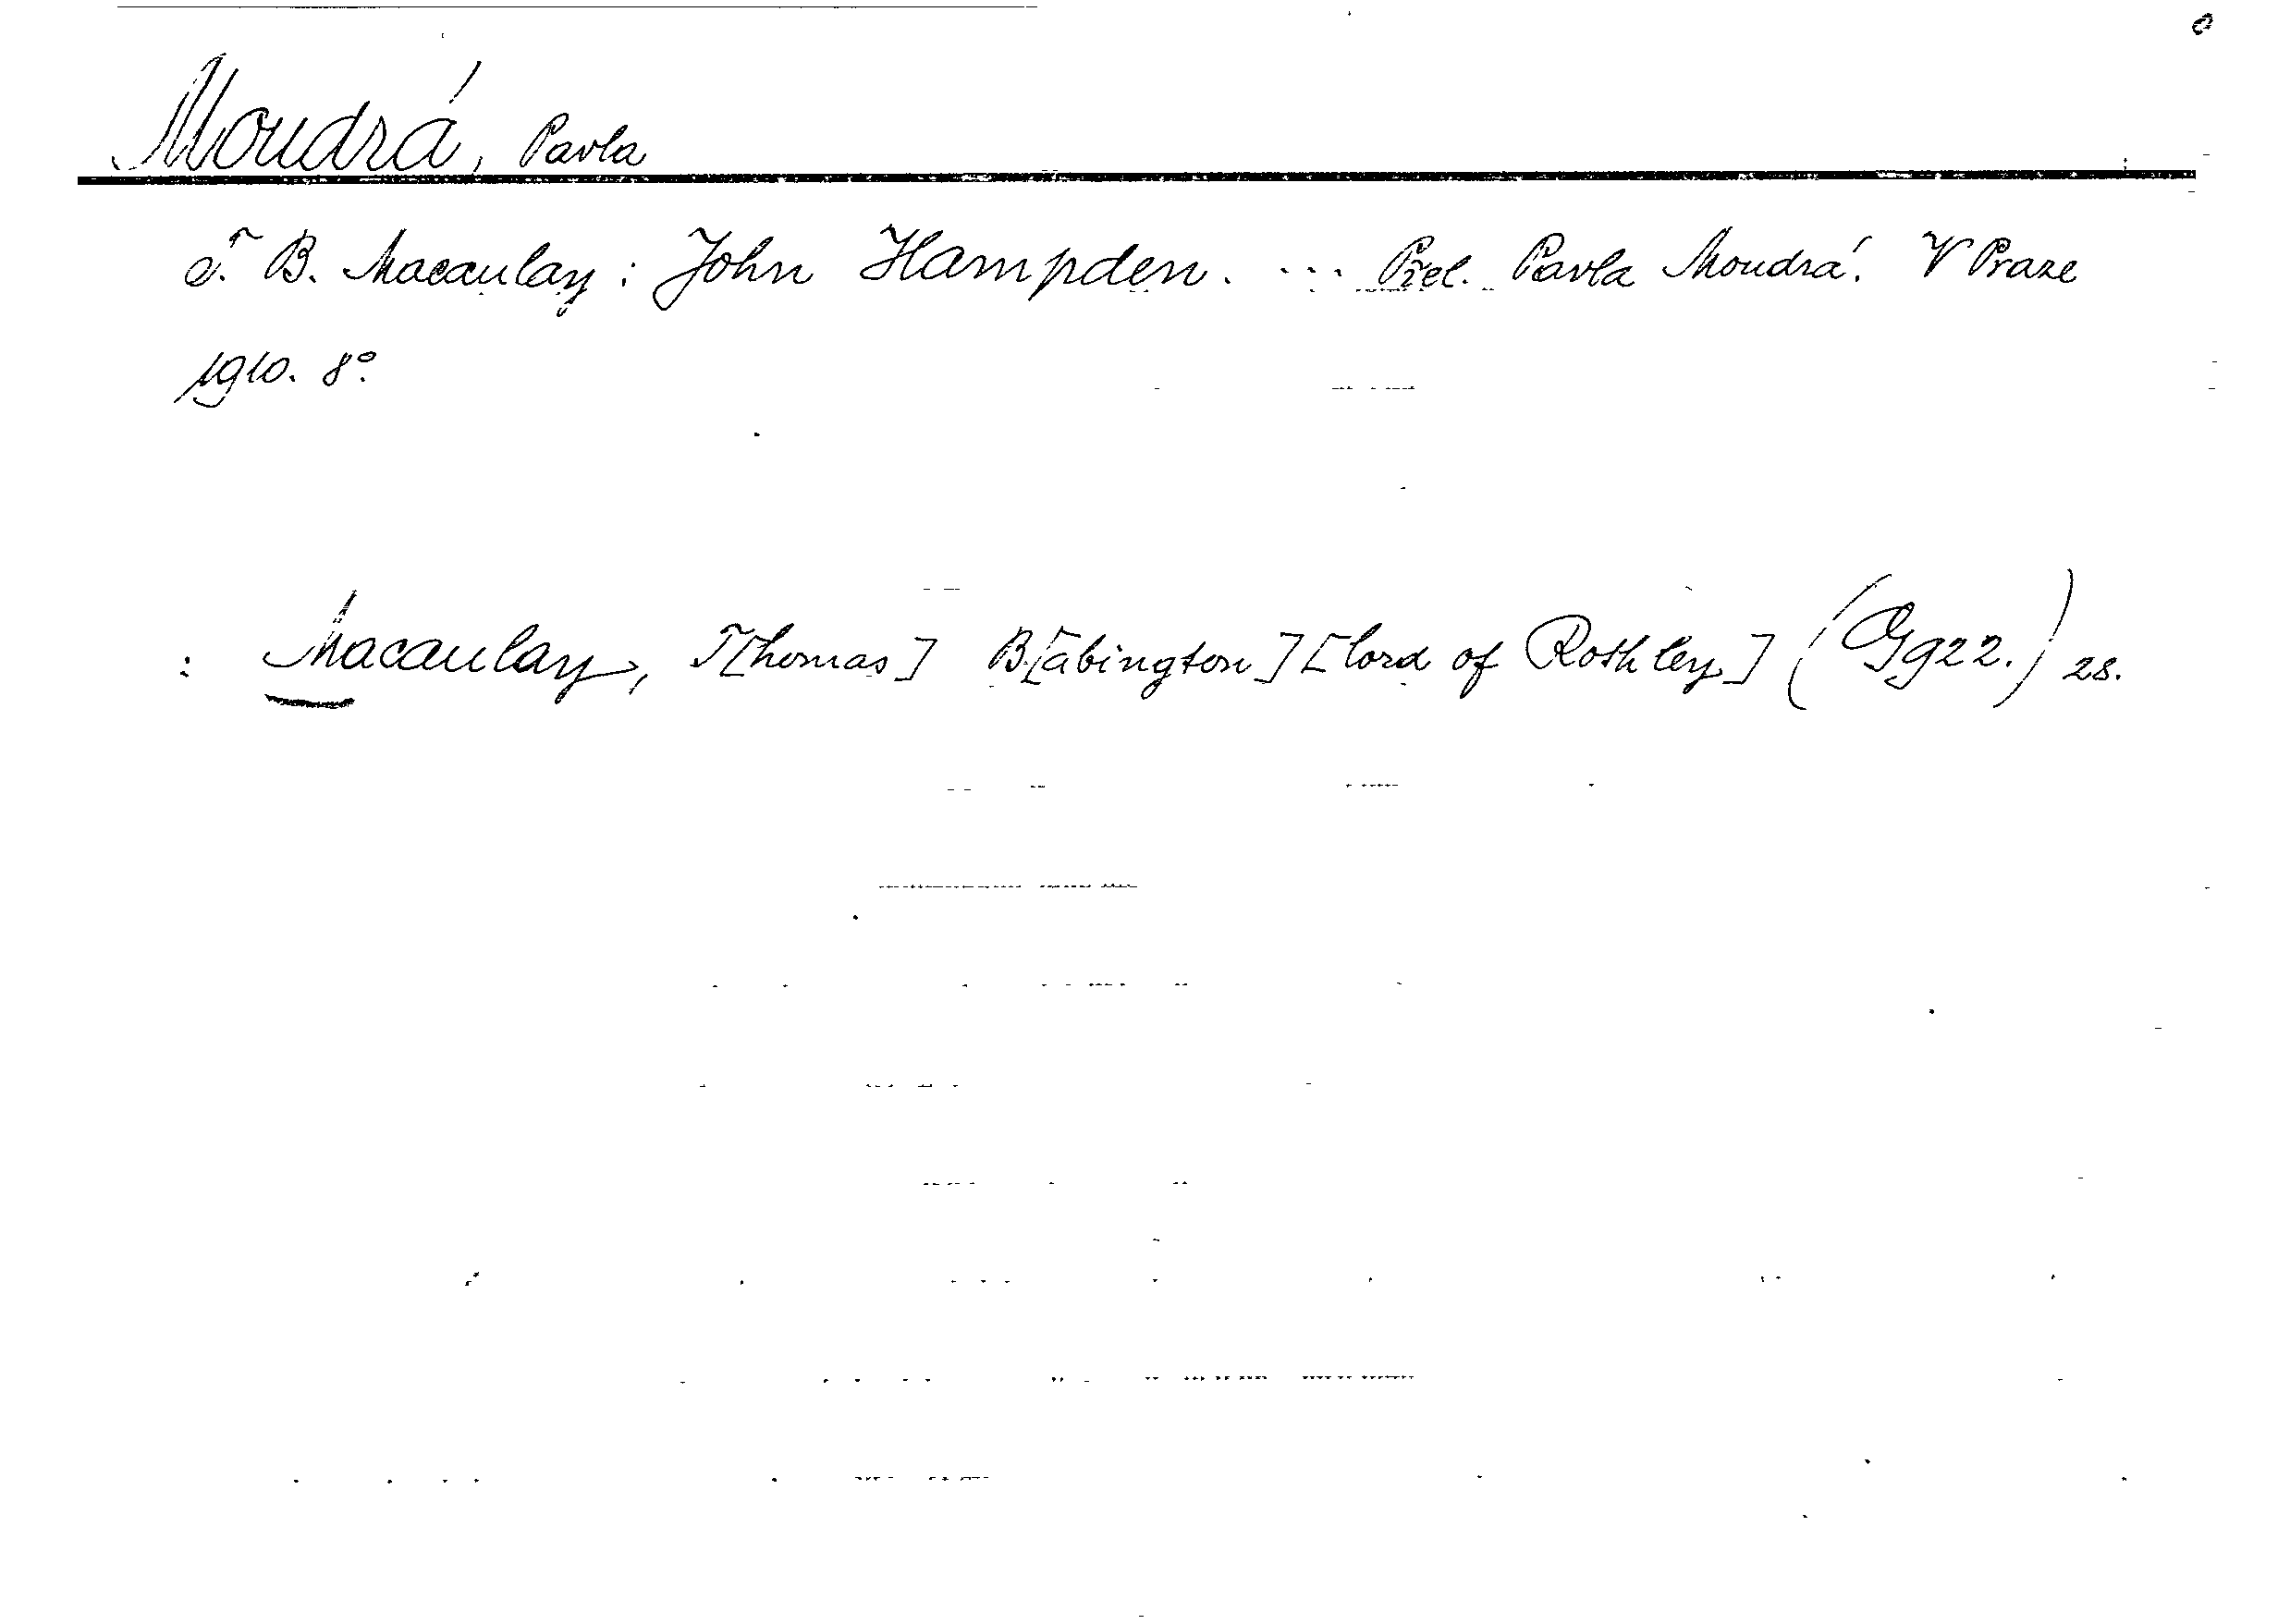 Moudrá, Pavla
T. B. Macaulay: John Hampden. ... Přel. Pavla Moudrá. V Praze
1910. 8°.
: Macaulay, T[homas] B[abington] [lord of Rothley] (Gg22.) 28.